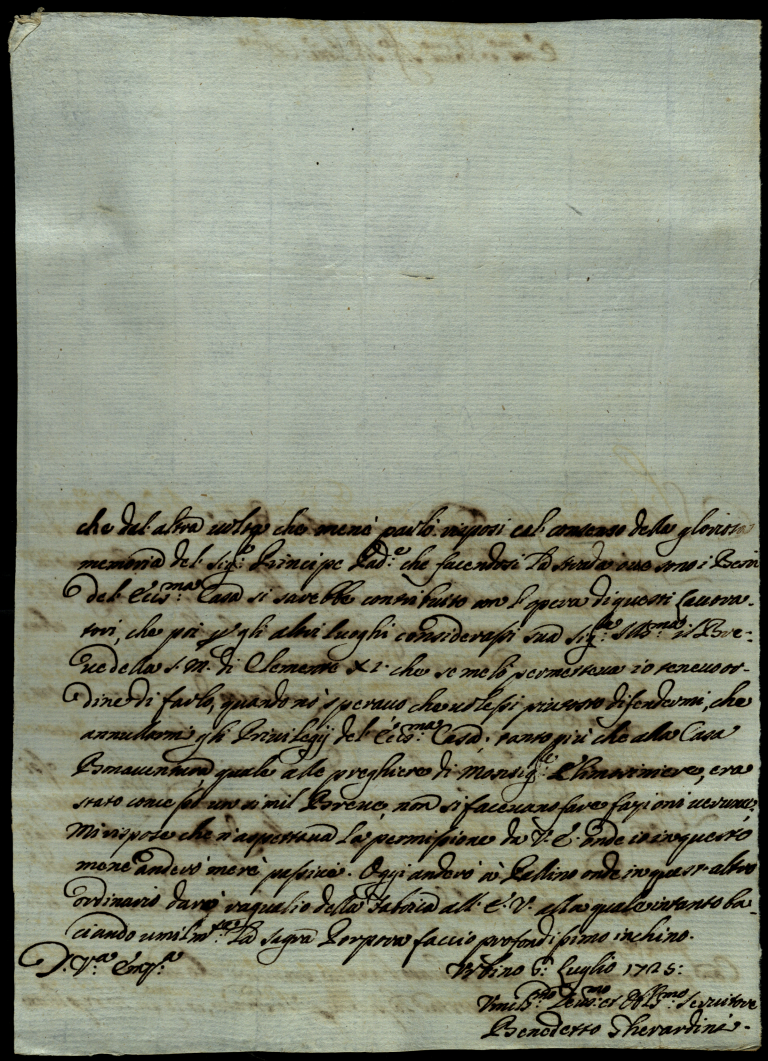 che dal altra uolta che mené parlò risposi col consenso della gloriosa
memoria del Sig.e Principe Pad.e che facendosi La strada oue sono i Beni
del Ecc.ma Casa si sarebbe contribuito con l'opera di questi Lauora-
tori, che poi p gli altri luoghi considerassi sua Sig.a Ill.ma il Bre-
ue della S. M. di Clemente XI. che se melò permetteua io teneuo or-
dine di farlo, quando nò sperauo che uolessi piuttosto difendermi, che
annullarmi gli Priuilegij del Ecc.ma Casa, tanto più che alla Casa
Bonauentura quale alle preghiere di Monsig.e Elimosiniere, era
stato concesso un simil Breue, non si faceuano fare fazioni ueruna.
Mi rispose che n'aspettaua La permissione da V. E. onde io in questo
mene anderò mere passiue. Oggi anderò à Pallino onde in quest'altro
ordinario darò raguaglio della Fabrica all' E. V. alla quale intanto ba-
ciando umilm.te La sagra Porpora faccio profondissimo inchino.
D. V.a Em.za Vrbino 6. Luglio 1725.
Vmiliss.mo Deuo.mo et Obb.mo Seruitore
Benedetto Gherardini.